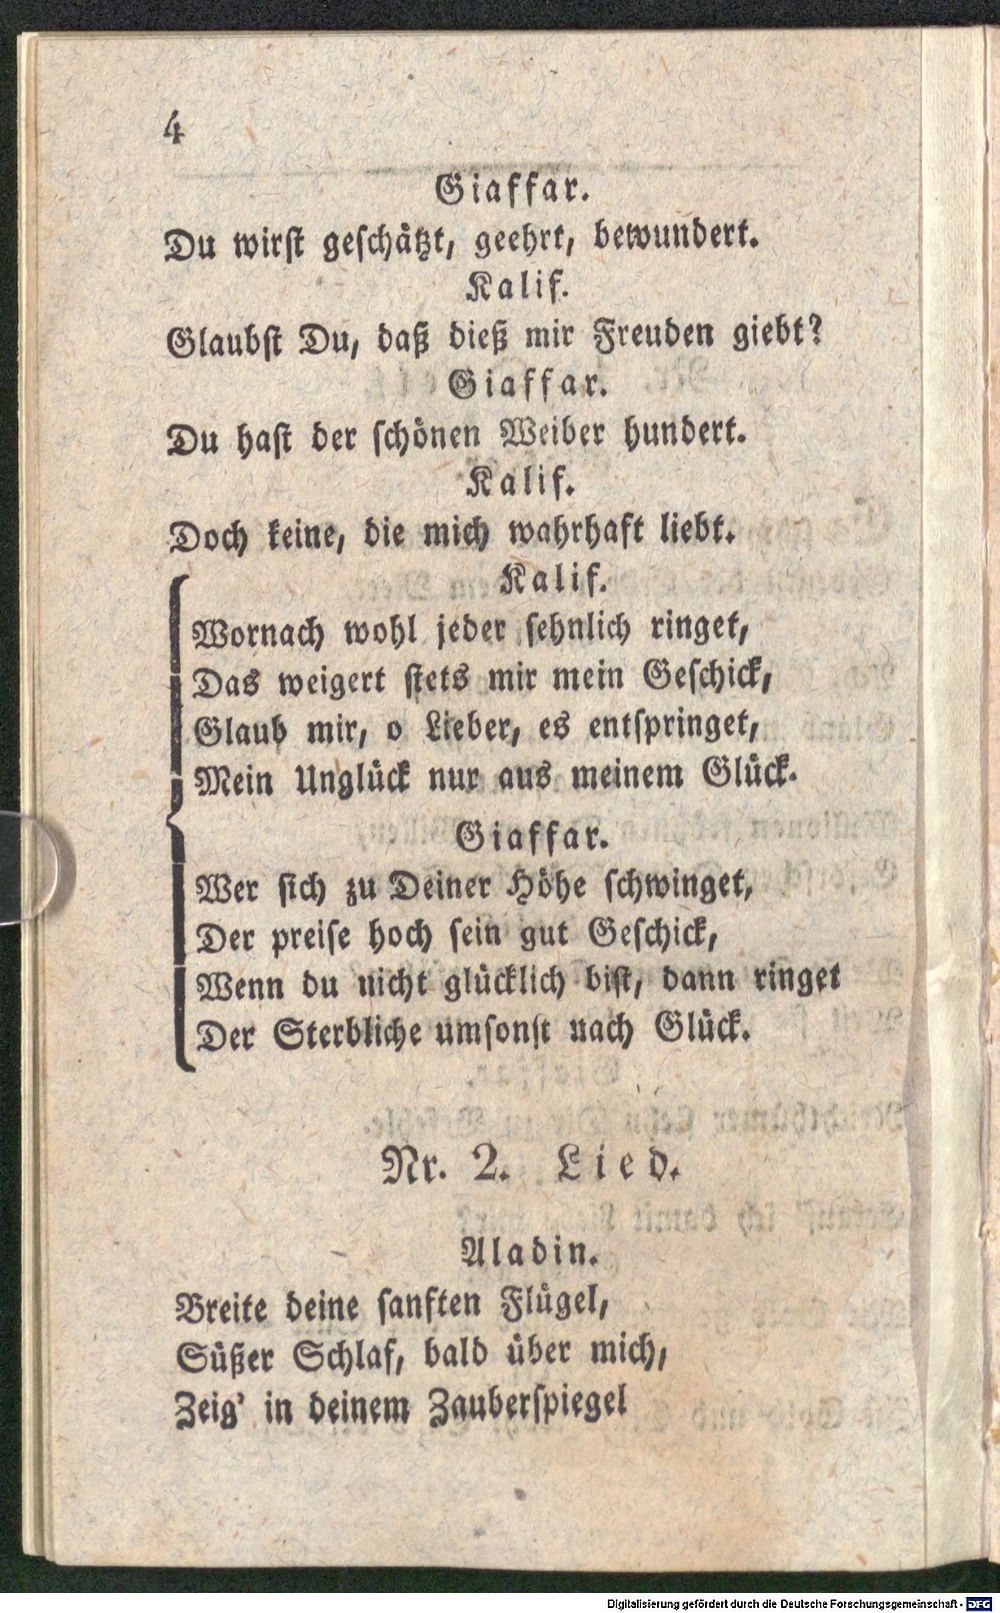 4
Giaffar.
Du wirst geschätzt, geehrt, bewundert.
Kalif.
Glaubst Du, daß dieß mir Freuden giebt?
Giaffar.
Du hast der schönen Weiber hundert.
Kalif.
Doch keine, die mich wahrhaft liebt.
Kalif.
Wornach wohl jeder sehnlich ringet,
Das weigert stets mir mein Geschick,
Glaub mir, o Lieber, es entspringet,
Mein Unglück nur aus meinem Glück.
Giaffar.
Wer sich zu Deiner Höhe schwinget,
Der preise hoch sein gut Geschick,
Wenn du nicht glücklich bist, dann ringet
Der Sterbliche umsonst nach Glück.
Nr. 2. Lied.
Aladin.
Breite deine sanften Flügel,
Süßer Schlaf, bald über mich,
Zeig' in deinem Zauberspiegel
Digitalisierung gefördert durch die Deutsche Forschungsgemeinschaft - DFG